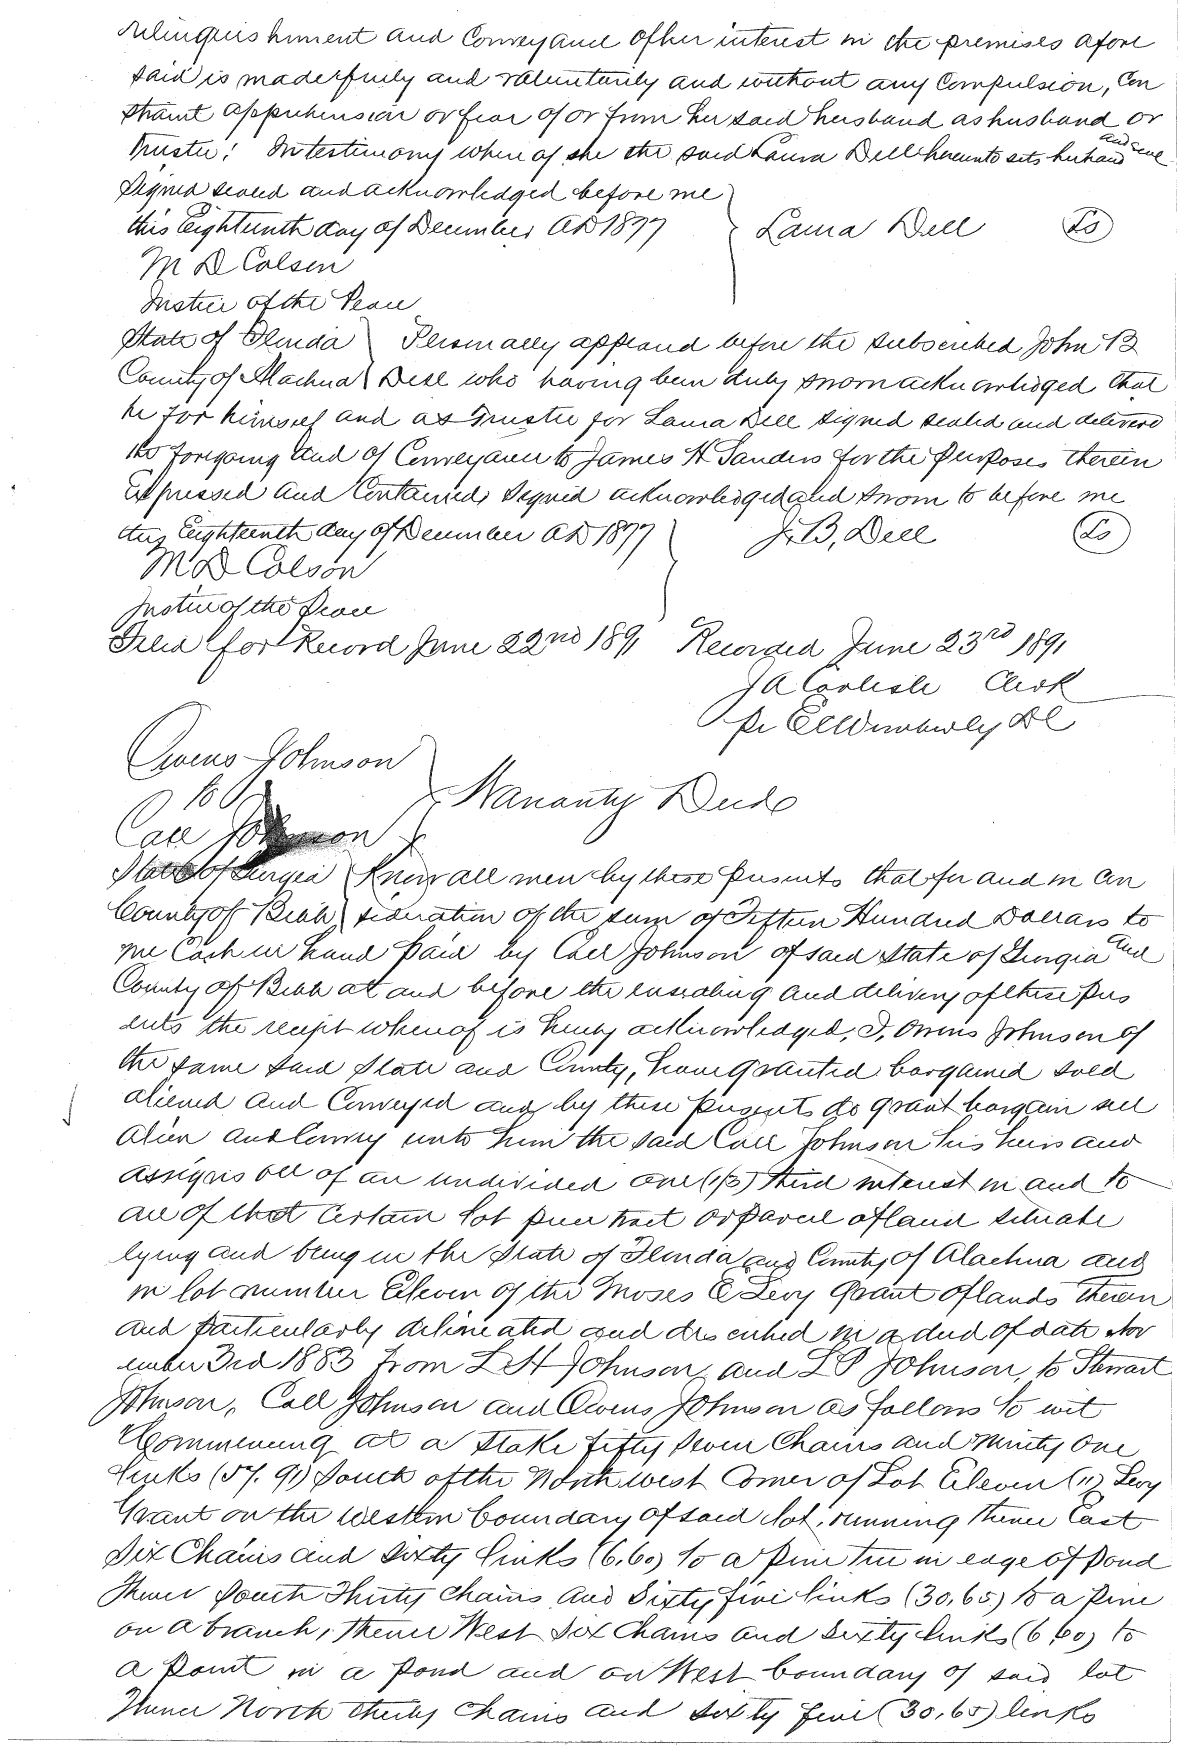 relinquishment and Conveyance of her interest in the premises afore
said is made freely and voluntarily and without any Compulsion, Con
straint apprehension or fear of or from her said husband as husband or
Trustee! In testimony where of she the said Laura Dell hereunto sets her hand and seal
Signed sealed and acknowledged before me
this Eighteenth day of December AD 1877 Laura Dell LS
M D Colson
Justice of the Peace
State of Florida Personally appeared before the subscribed John B
County of Alachua Dell who having been duly sworn acknowledged that
he for himself and as Trustee for Laura Dell signed sealed and delivered
the foregoing deed of Conveyance to James H Sanders for the Purposes therein
Expressed and Contained, Signed acknowledged and sworn to before me
this Eighteenth day of December AD 1877 J. B, Dell LS
M. D Colson
Justice of the Peace
Filed for Record June 22nd 1891 Recorded June 23rd 1891
J A Carlisle Clerk
pr E C Wimberly DC
Owens Johnson
to Warranty Deed
Call Johnson
State of Georgia Know all men by these presents that for and in Con
County of Bibb sideration of the sum of Fifteen Hundred Dollars to
me Cash in hand paid by Call Johnson of said State of Georgia and
County of Bibb at and before the ensealing and delivery of these pres
ents the receipt whereof is hereby acknowledged, I, Owens Johnson of
the same said State and County, have granted bargained sold
aliened and Conveyed and by these presents do grant bargain sell
alien and Convey unto him the said Call Johnson his heirs and
assigns all of an undivided one (1/3) third interest in and to
all of that certain lot piece tract or parcel of land situate
lying and being in the State of Florida and County of Alachua and
in lot number Eleven of the Moses E Levy Grant of lands therein
and particularly delineated and described in a deed of date Nov
ember 3rd 1883 from L H Johnson, and L P Johnson, to Stewart
Johnson, Call Johnson and Owens Johnson as follows to wit
Commencing at a stake fifty seven Chains and Ninety one
links (57.91) South of the North west Corner of Lot Eleven (11) Levy
Grant on the western boundary of said lot, running thence East
Six Chains and sixty links (6,60) to a pine tree in edge of pond
Thence South Thirty chains and sixty five links (30,65) to a pine
on a branch, thence West six Chains and sixty links (6,60) to
a point in a pond and on West boundary of said lot
Thence North thirty chains and sixty five (30,65) links